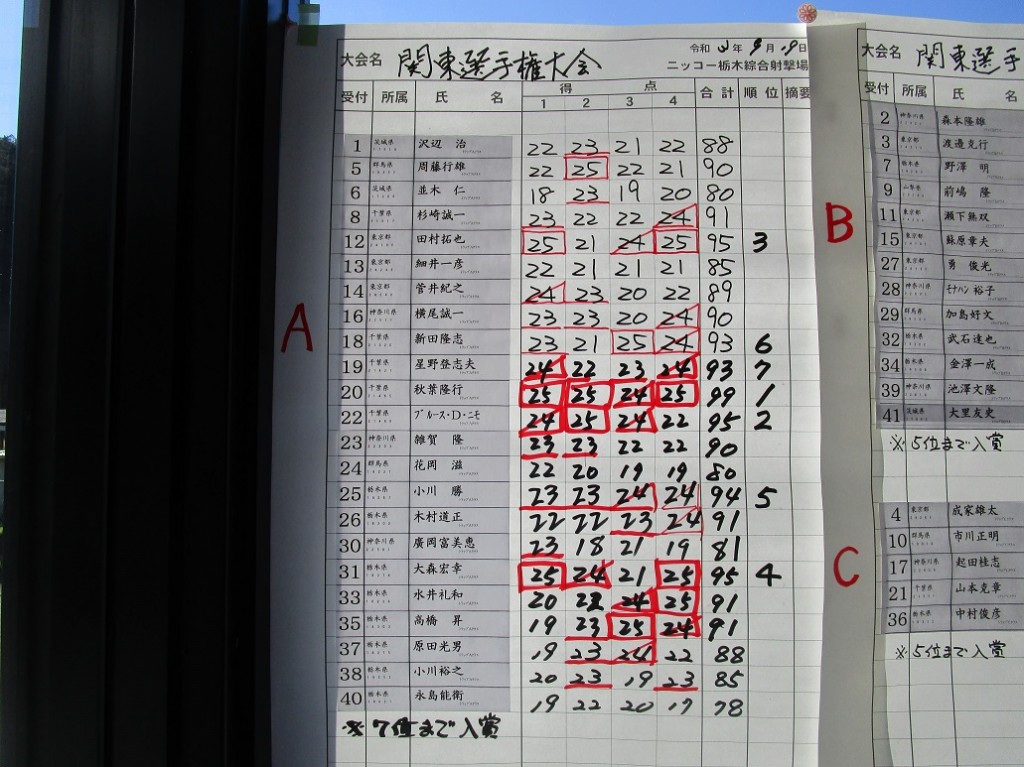 大会名 関東選手権大会 令和3年9月19日
ニッコー栃木綜合射撃場
受付 所属 氏名 得点 合計 順位 摘要
1 2 3 4
1 茨城県 沢辺 治 22 23 21 22 88
5 群馬県 周藤行雄 22 25 22 21 90
6 茨城県 並木 仁 18 23 19 20 80
8 千葉県 杉崎誠一 23 22 22 24 91
12 東京都 田村拓也 25 21 24 25 95 3
13 東京都 細井一彦 22 21 21 21 85
14 東京都 菅井紀之 24 23 20 22 89
16 神奈川県 横尾誠一 23 23 20 24 90
18 千葉県 新田隆志 23 21 25 24 93 6
19 千葉県 星野登志夫 24 22 23 24 93 7
20 千葉県 秋葉隆行 25 25 24 25 99 1
22 千葉県 ブルース・D・ニモ 24 25 24 22 95 2
23 神奈川県 雑賀 隆 23 23 22 22 90
24 群馬県 花岡 滋 22 20 19 19 80
25 栃木県 小川 勝 23 23 24 24 94 5
26 栃木県 木村道正 22 22 23 24 91
30 神奈川県 廣岡富美恵 23 18 21 19 81
31 栃木県 大森宏幸 25 24 21 25 95 4
33 栃木県 水井礼和 20 22 24 25 91
35 栃木県 高橋 昇 19 23 25 24 91
37 栃木県 原田光男 19 23 24 22 88
38 栃木県 小川裕之 20 23 19 23 85
40 栃木県 永島能衛 19 22 20 17 78
※7位まで入賞
A
大会名 関東選手
受付 所属 氏名
2 神奈川県 森本隆雄
3 東京都 渡邉克行
7 栃木県 野澤 明
9 山梨県 前嶋 隆
11 東京都 瀬下無双
15 東京都 蘇原章夫
27 東京都 勇 俊光
28 神奈川県 モナハン裕子
29 群馬県 加島好文
32 栃木県 武石達也
34 栃木県 金澤一成
39 神奈川県 池澤文隆
41 茨城県 大里友史
※5位まで入賞
B
4 東京都 成家雄太
10 群馬県 市川正明
17 神奈川県 起田桂志
21 千葉県 山本克章
36 栃木県 中村俊彦
※5位まで入賞
C